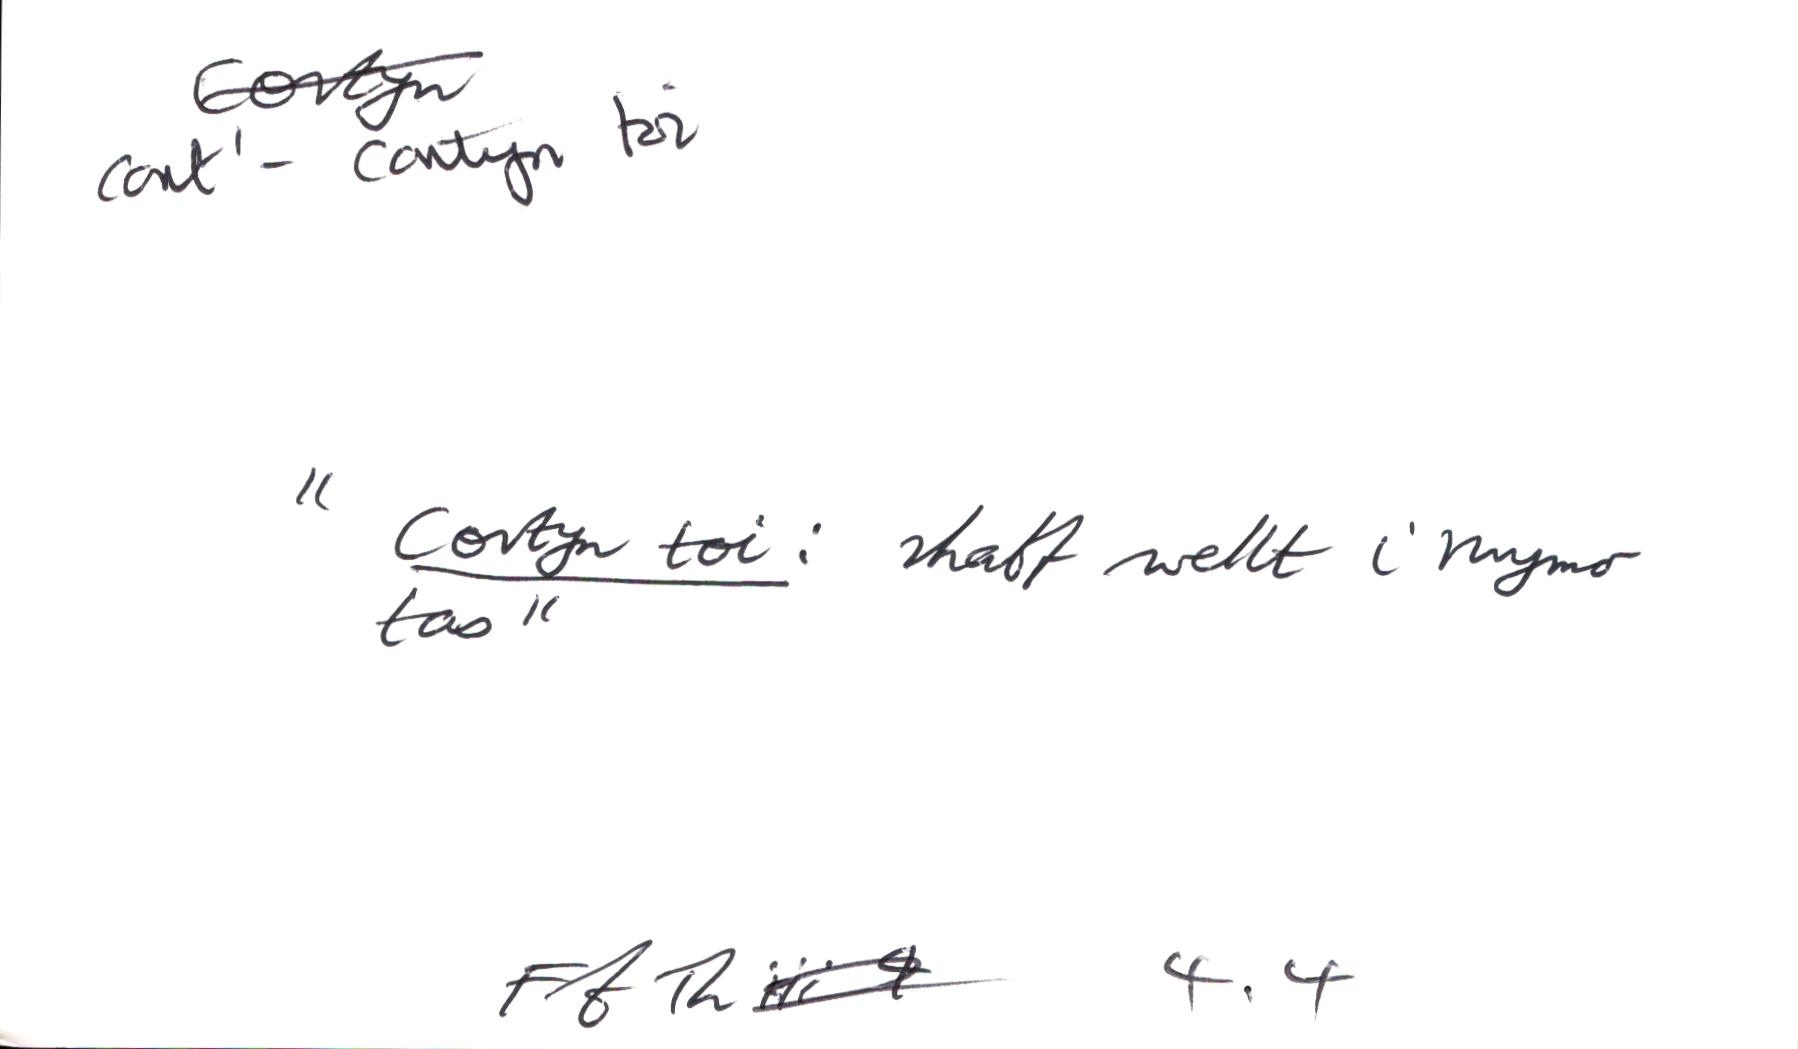 Cortyn
cort' - cortyn toi
" Cortyn toi : rhaff wellt i rwymo
tas "
Ff Th iii 4 4.4